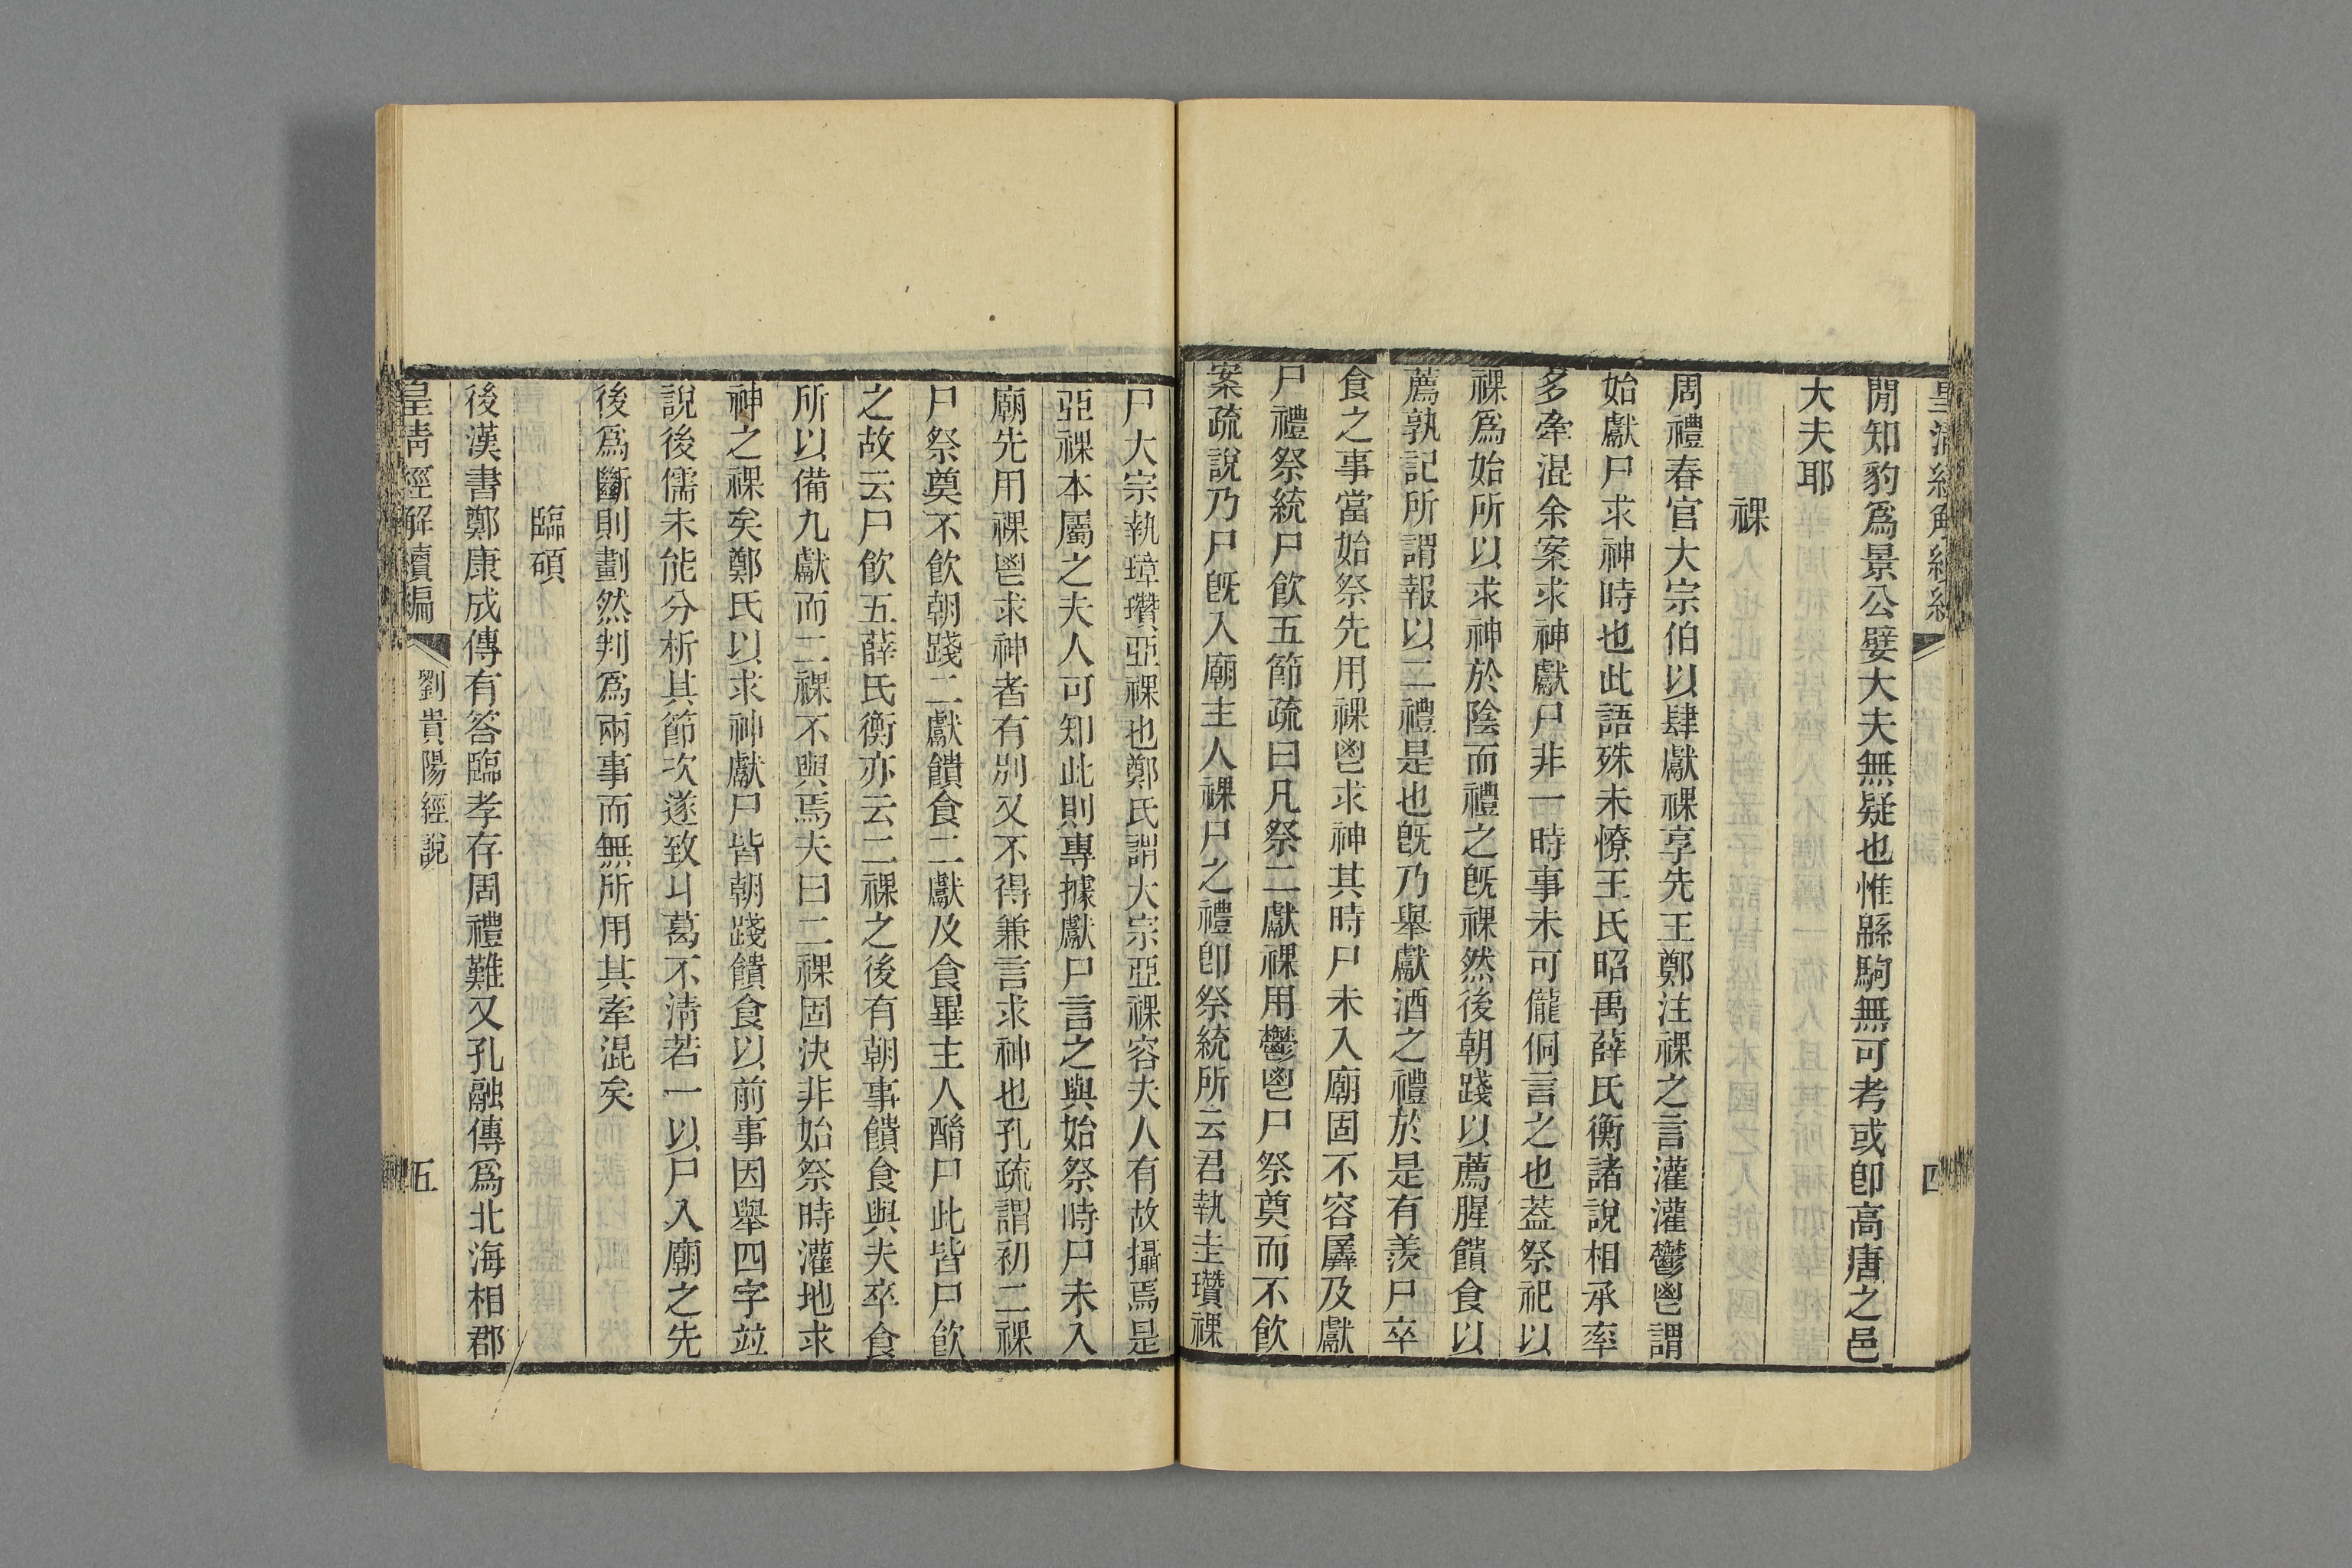 閒知豹爲景公嬖大夫無疑也惟緜駒無可考或卽高唐之邑
大夫耶
祼
周禮春官大宗伯以肆獻祼享先王鄭注祼之言灌灌鬱鬯謂
始獻尸求神時也此語殊未憭王氏昭禹薛氏衡諸說相承率
多牽混余案求神獻尸非一時事未可儱侗言之也蓋祭祀以
祼爲始所以求神於陰而禮之旣祼然後朝踐以薦腥饋食以
薦孰記所謂報以二禮是也旣乃舉獻酒之禮於是有羨尸卒
食之事當始祭先用祼鬯求神其時尸未入廟固不容羼及獻
尸禮祭統尸飮五節疏曰凡祭二獻祼用鬱鬯尸祭奠而不飮
案疏說乃尸旣入廟主人祼尸之禮卽祭統所云君執圭瓚祼
尸大宗執璋瓚亞祼也鄭氏謂大宗亞祼容夫人有故攝焉是
亞祼本屬之夫人可知此則專據獻尸言之與始祭時尸未入
廟先用祼鬯求神者有別又不得兼言求神也孔疏謂初二祼
尸祭奠不飮朝踐二獻饋食二獻及食畢主人酳尸此皆尸飮
之故云尸飮五薛氏衡亦云二祼之後有朝事饋食與夫卒食
所以備九獻而二祼不與焉夫曰二祼固決非始祭時灌地求
神之祼矣鄭氏以求神獻尸皆朝踐饋食以前事因舉四字竝
說後儒未能分析其節次遂致丩葛不淸若一以尸入廟之先
後爲斷則劃然判爲兩事而無所用其牽混矣
臨碩
後漢書鄭康成傳有答臨孝存周禮難又孔融傳爲北海相郡
皇淸經解續編
劉貴陽經說
五